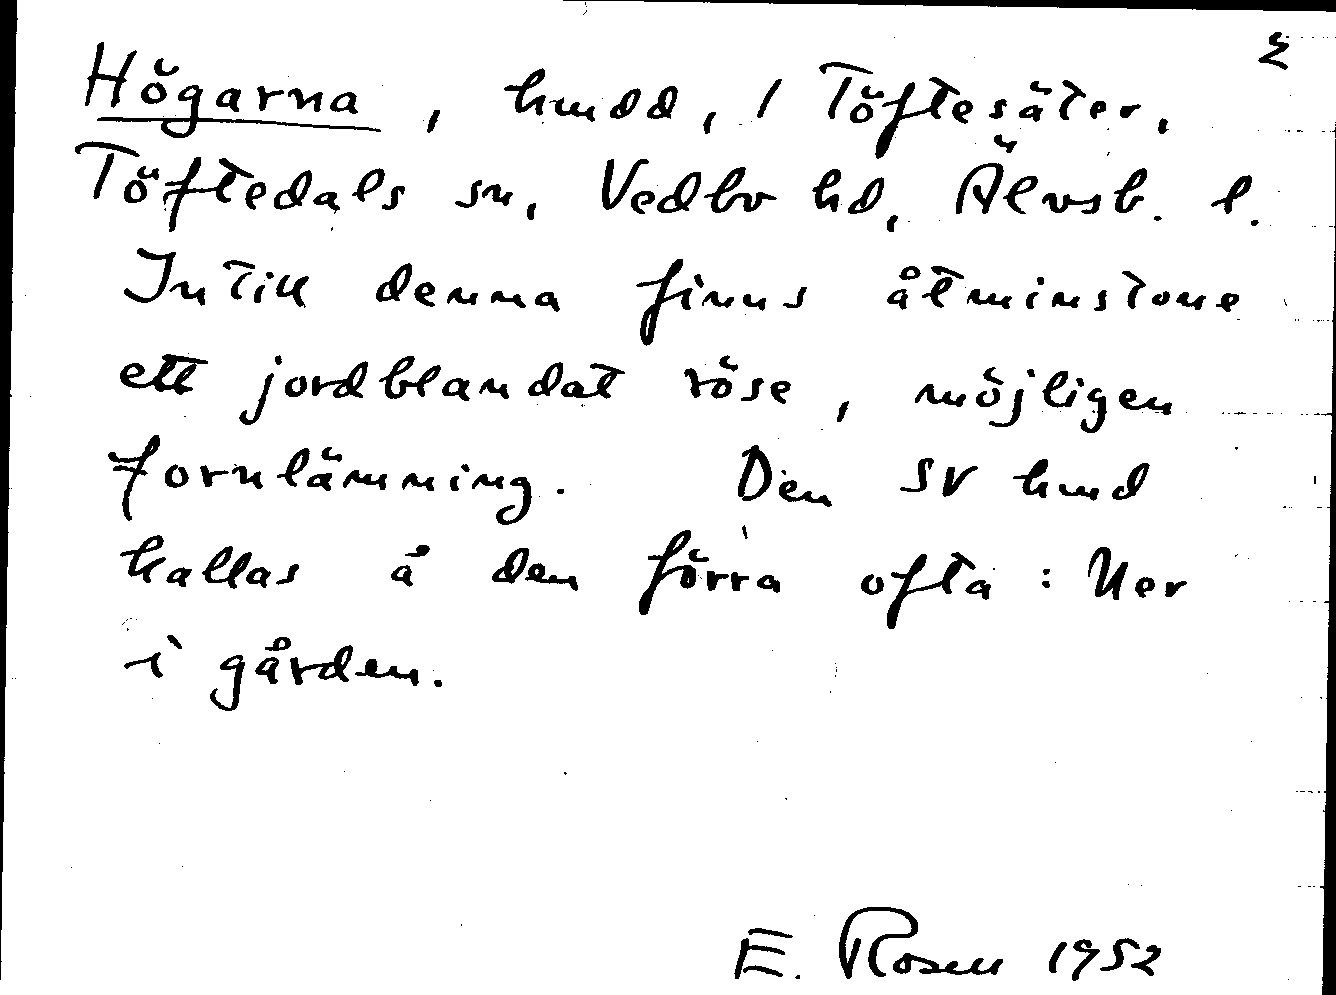 2
Högarna, hmdd, 1 Töftesäter,
Töftedals sn, Vedbo hd, Älvsb. l.
Intill denna finns åtminstone
ett jordblandat röse, möjligen
fornlämning. Den SV hmd
kallas å den förra ofta: Ner
i gården.
E. Rosen 1952